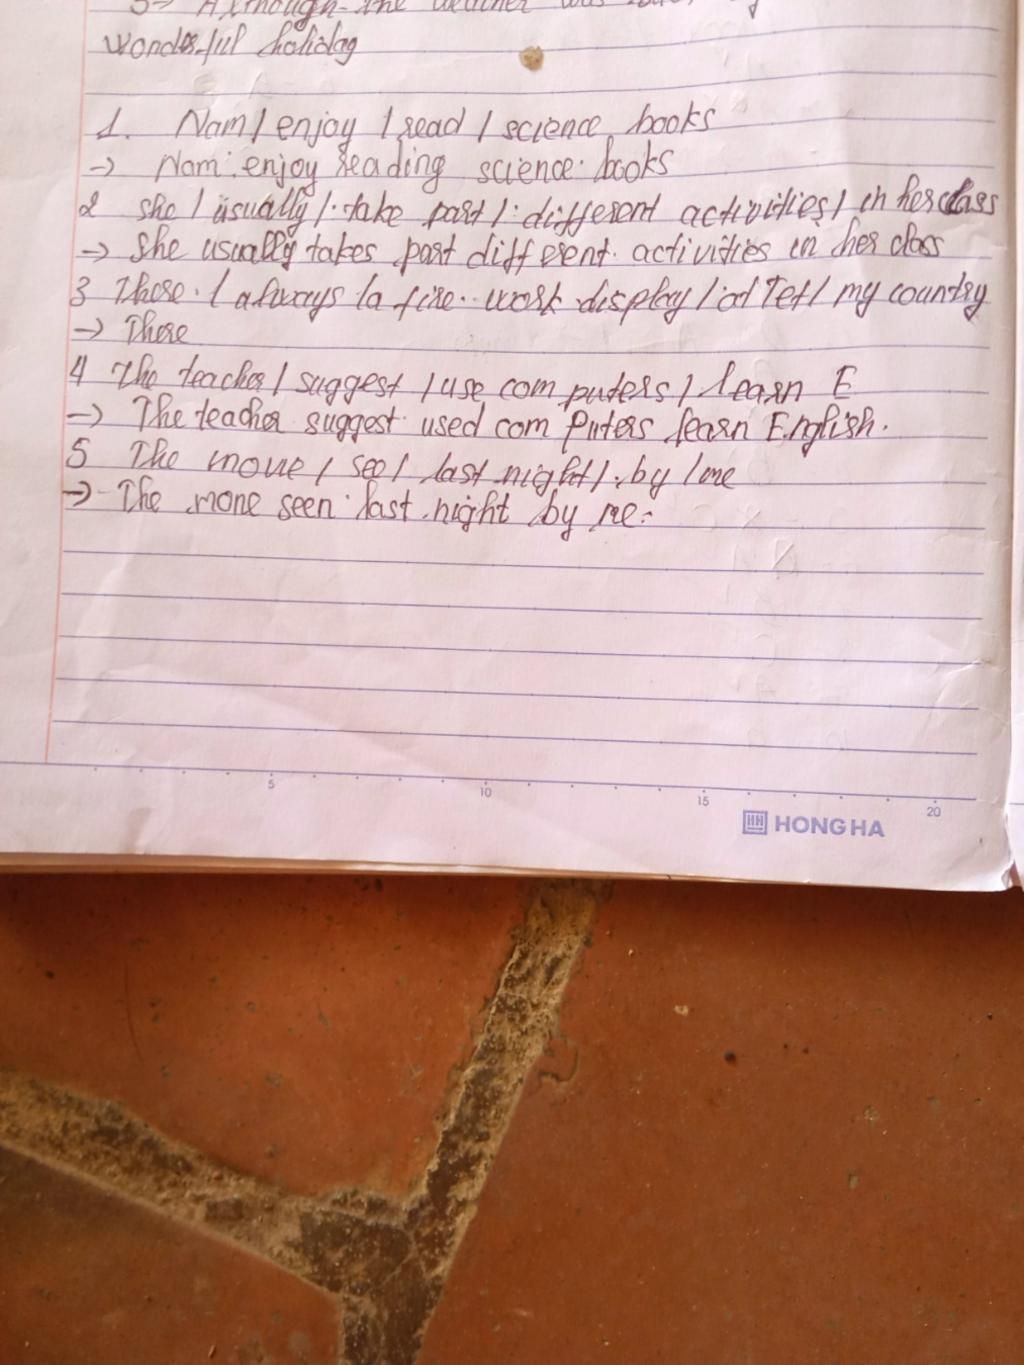 5-> Although the weather was
wonderful holiday
1. Nam / enjoy / read / science books
-> Nam enjoy reading science books
2 she / usually / take part / different activities / in her class
-> She usually takes part different activities in her class
3 There / always / a fire work display / at Tet / my country
-> There
4 The teacher / suggest / use com puters / learn E
-> The teacher suggest used com Puters learn English.
5 The movie / see / last night / by / me
-> The mone seen last night by me.
5 10 15 20
HH HONG HA